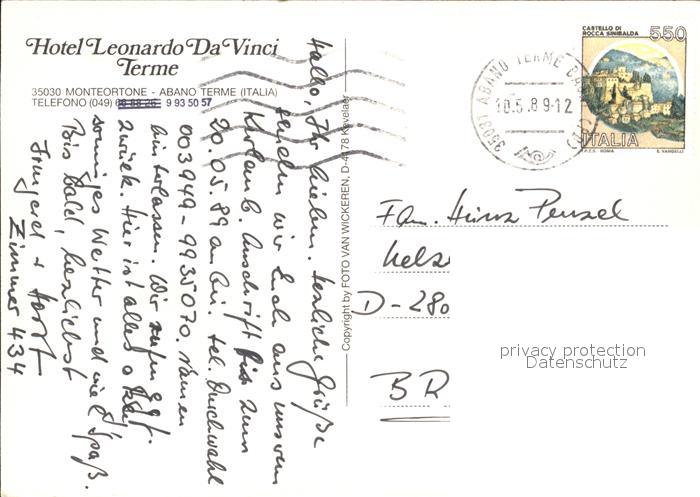 Hotel Leonardo Da Vinci
Terme
35030 MONTEORTONE - ABANO TERME (ITALIA)
TELEFONO (049) 9 93 50 57
Hallo, Ihr Lieben. Herzliche Grüße
senden wir Euch aus unserem
Kurlaub. Anschrift bis zum
20.05.89 an bei. tel. Durchwahl
003949-9935070. Namen
hinterlassen. Wir rufen ggf.
zurück. Hier ist alles okay
sonniges Wetter und viel Spaß.
Bis bald, herzlichst
Irmgard + Horst
Zimmer 434
Copyright by FOTO VAN WICKEREN, D-4178 Kevelaer
35031 ABANO TERME
10.5.89-12
CASTELLO DI
ROCCA SINIBALDA
550
ITALIA
I.P.Z.S. ROMA E. VANGELLI
Fam. Heinz Penzel
D-280
BR
privacy protection
Datenschutz